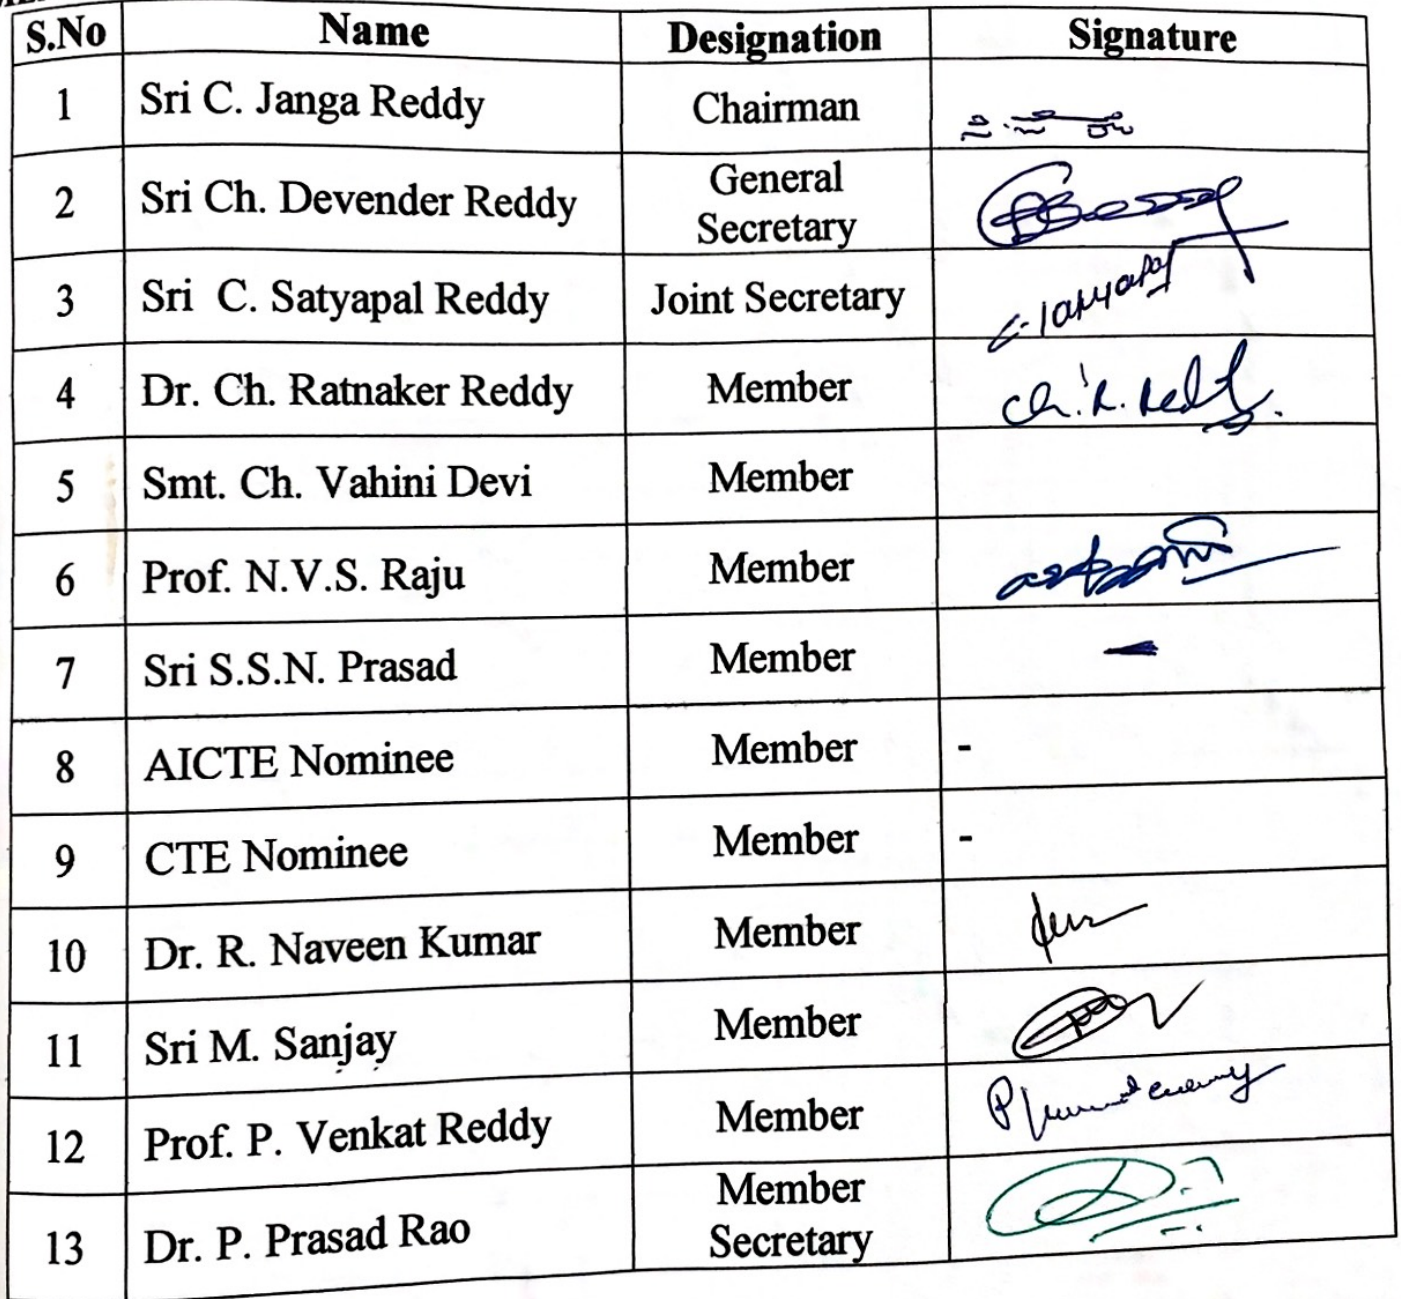 S.No Name Designation Signature
1 Sri C. Janga Reddy Chairman
2 Sri Ch. Devender Reddy General Secretary
3 Sri C. Satyapal Reddy Joint Secretary
4 Dr. Ch. Ratnaker Reddy Member Ch. R. Redd
5 Smt. Ch. Vahini Devi Member
6 Prof. N.V.S. Raju Member
7 Sri S.S.N. Prasad Member -
8 AICTE Nominee Member -
9 CTE Nominee Member -
10 Dr. R. Naveen Kumar Member
11 Sri M. Sanjay Member
12 Prof. P. Venkat Reddy Member
13 Dr. P. Prasad Rao Member Secretary